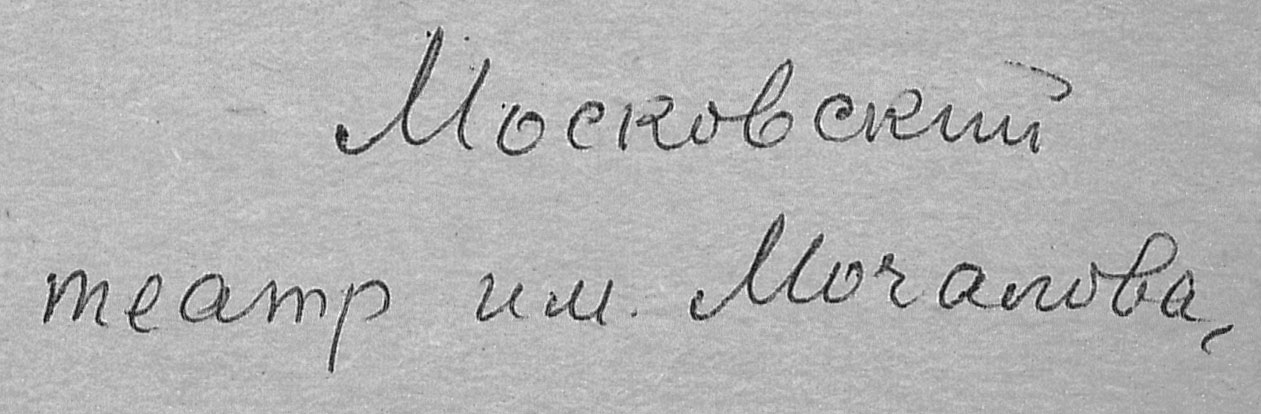 Московский
театр им. Мочалова,